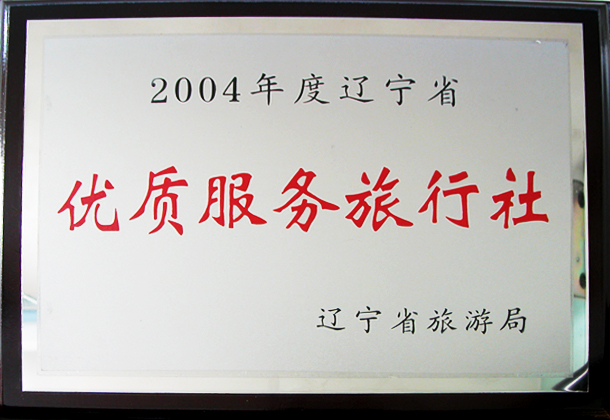 2004年度辽宁省
优质服务旅行社
辽宁省旅游局